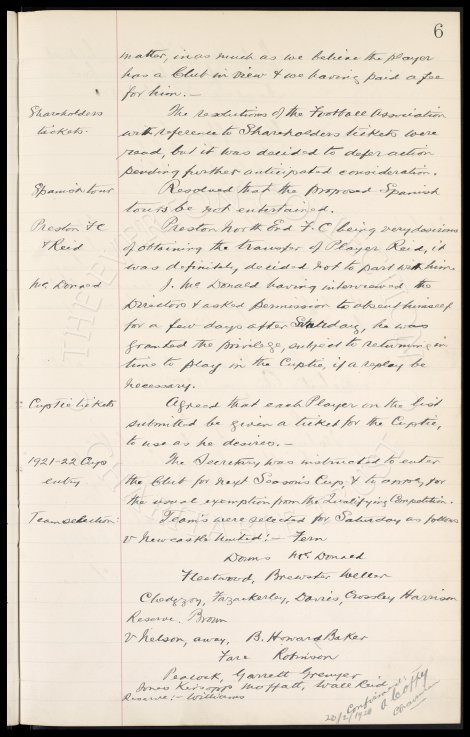 6
matter, inasmuch as we believe the player
has a Club in view & we having paid a fee
for him. —
Shareholders tickets.
The resolutions of the Football Association
with reference to Shareholders tickets were
read, but it was decided to defer action
pending further anticipated consideration.
Spanish tour
Resolved that the proposed Spanish
tours be not entertained.
Preston F C & Reid
Preston North End F.C. being very desirous
of obtaining the transfer of Player Reid, it
was definitely decided not to part with him.
Mc Donald
J. Mc Donald having interviewed the
Directors & asked permission to absent himself
for a few days after Saturday, he was
granted the privilege, subject to returning in
time to play in the Cuptie, if a replay be
necessary.
Cup Tie tickets
Agreed that each Player on the list
submitted be given a ticket for the Cuptie,
to use as he desires. —
1921-22 Cup entry
The Secretary was instructed to enter
the Club for next Season's Cup, & to apply for
the usual exemption from the Qualifying Competition.
Team selection:
Teams were selected for Saturday as follows
v Newcastle United: — Fern
Downs McDonald
Fleetwood, Brewster Weller
Chedgzoy, Fazackerley, Davies, Crossley Harrison
Reserve. Brown
v Nelson, away, B. Howard Baker
Fare Robinson
Peacock, Garrett Grenyer
Jones Kirsopp Moffatt, Wall Reid
Reserve: — Williams
Confirmed
20/2/1920
Chairman